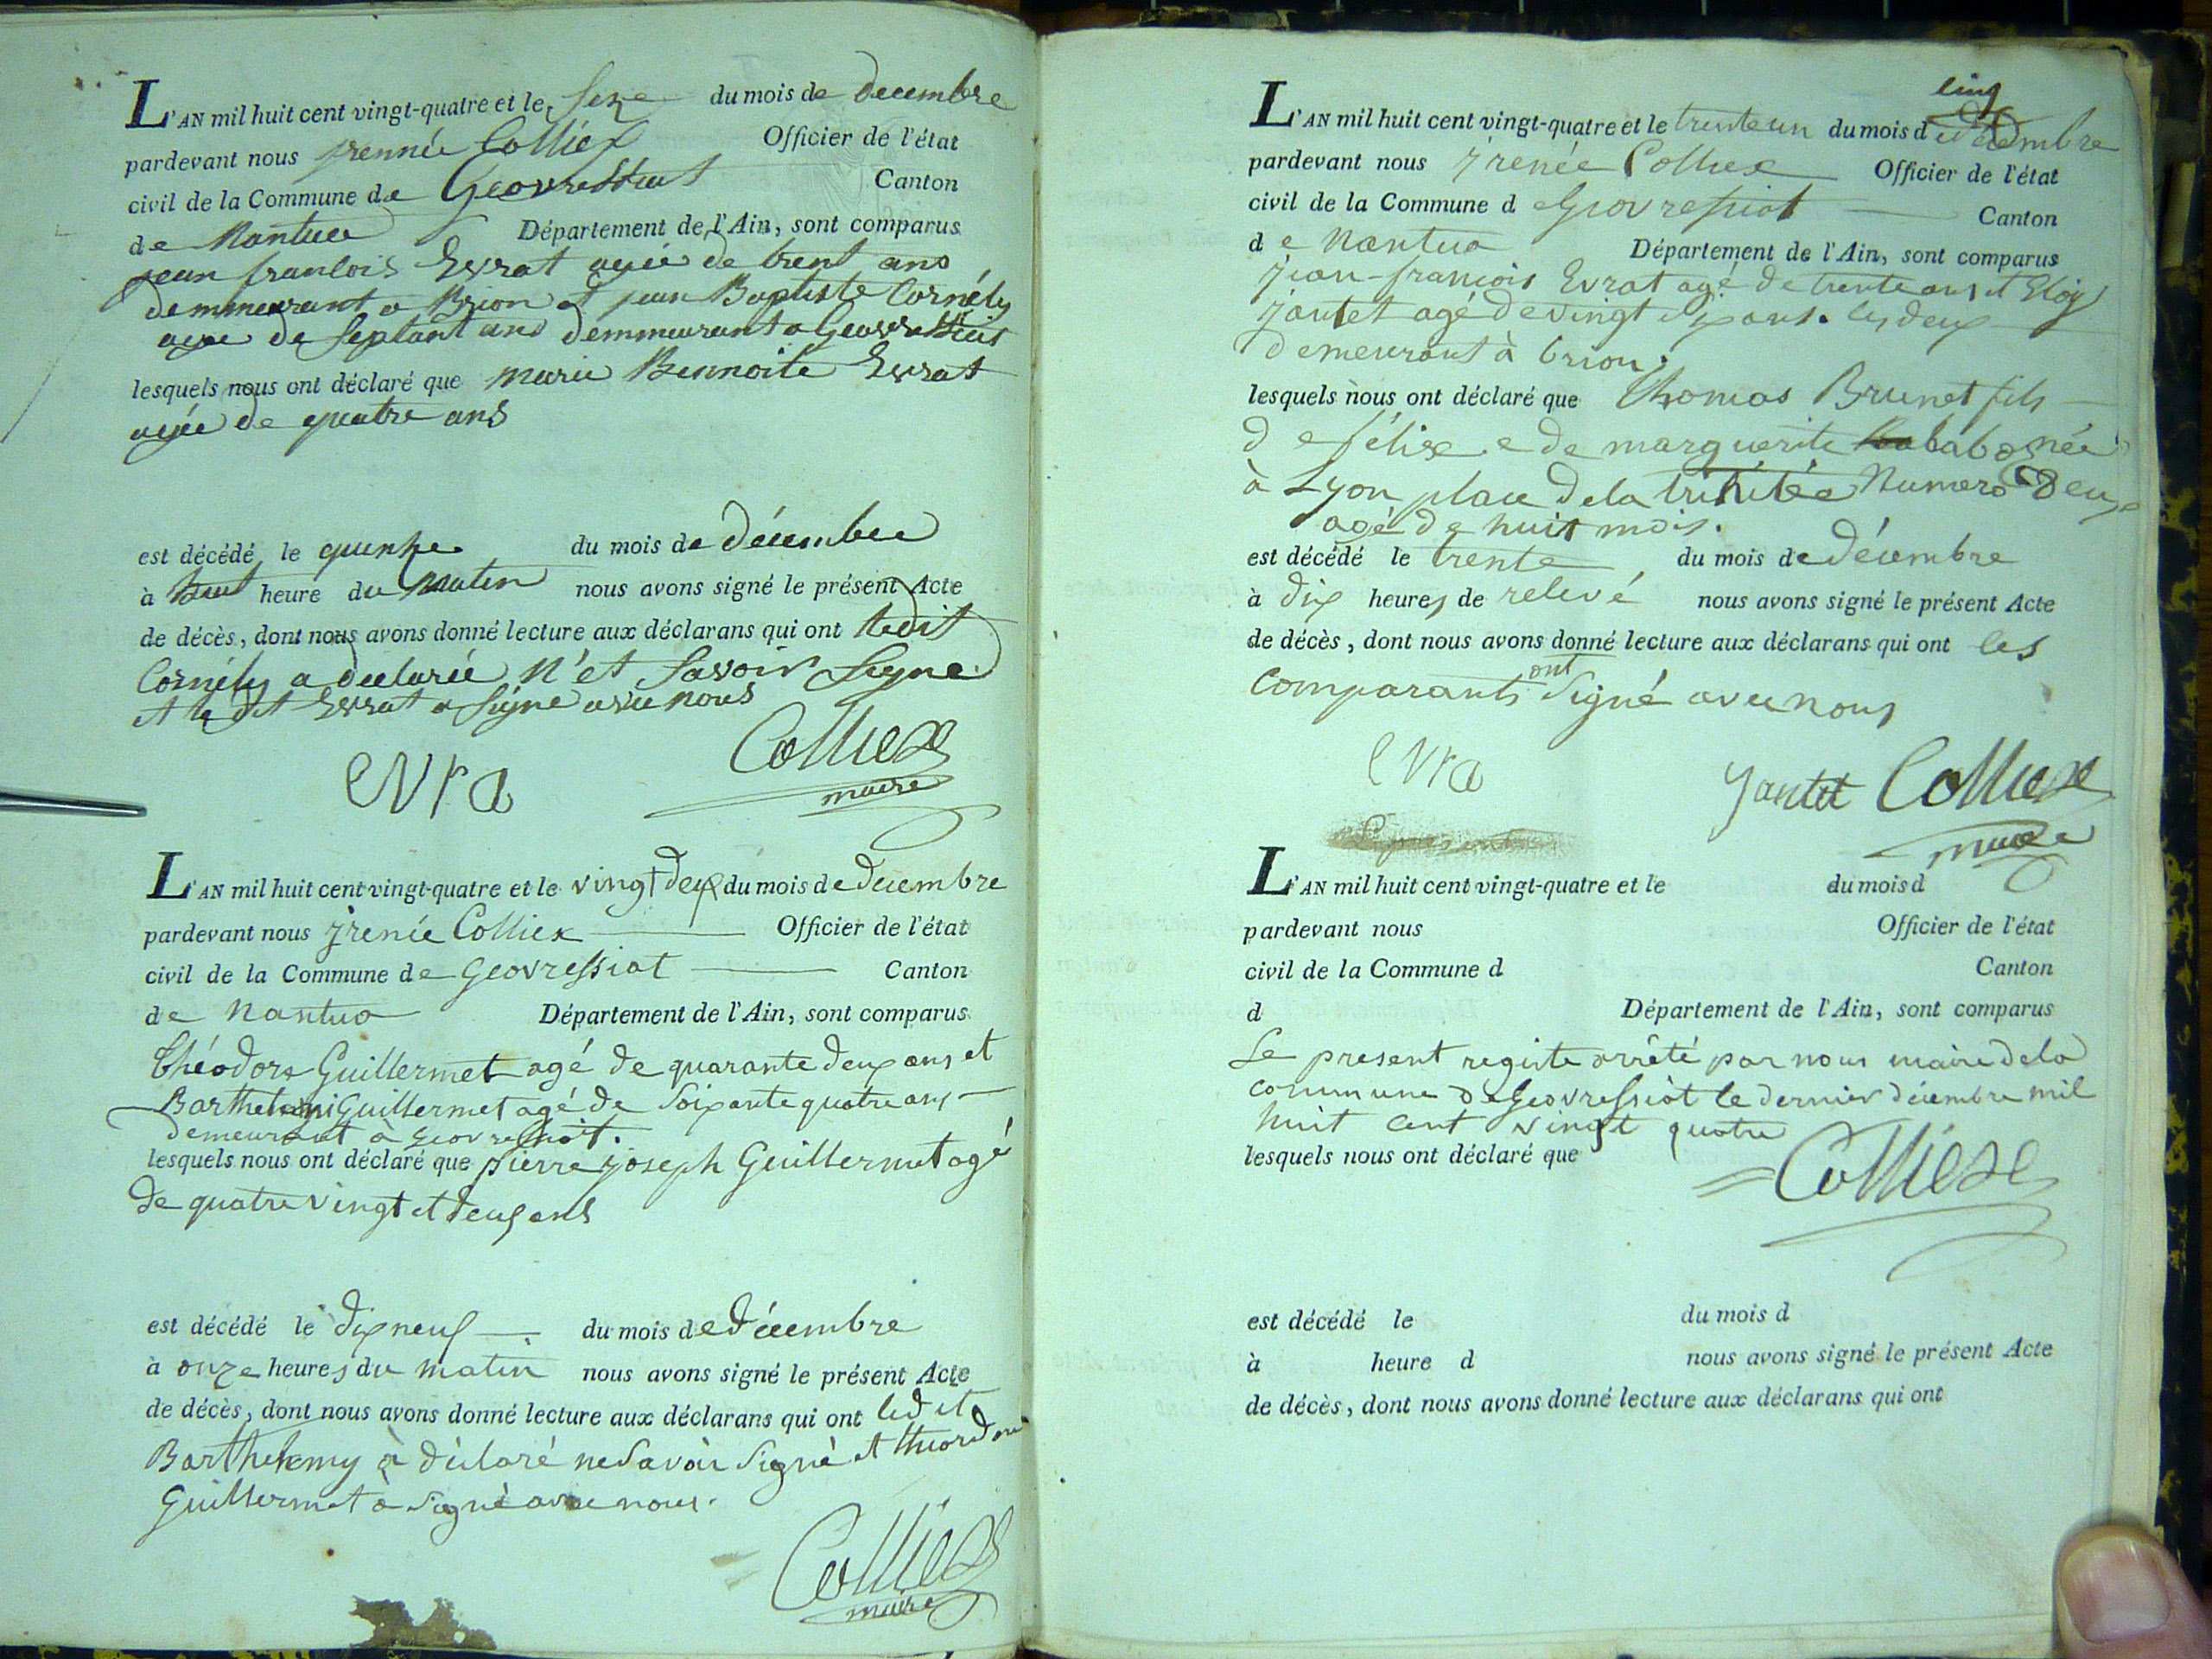 L'AN mil huit cent vingt-quatre et le seze du mois de decembre
pardevant nous jrennée Colliex Officier de l'état
civil de la Commune de Geovressiat Canton
de Nantua Département de l'Ain, sont comparus
jean francois Evrat agée de trent ans
demmeurant a Brion et jean Baptiste Cornély
agee de septant ans demmeurant a Geovressiat
lesquels nous ont déclaré que marie Bennoite Evrat
agée de quatre ans
est décédé le quinze du mois de décembre
à huit heure du matin nous avons signé le présent Acte
de décès, dont nous avons donné lecture aux déclarans qui ont ledit
Cornély a declarée n'et savoir signe
et le dit Evrat a signe avec nous
evra
Colliex
maire
L'AN mil huit cent vingt-quatre et le vingt deux du mois de decembre
pardevant nous jrenée Colliex Officier de l'état
civil de la Commune de Geovressiat Canton
de Nantua Département de l'Ain, sont comparus
théodore Guillermet agé de quarante deux ans et
Barthelemi Guillermet agé de soixante quatre ans
demeurant à Geovressiat.
lesquels nous ont déclaré que pierre joseph Guillermet agé
de quatre vingt et deux ans
est décédé le dix neuf du mois de décembre
à onze heures du matin nous avons signé le présent Acte
de décès, dont nous avons donné lecture aux déclarans qui ont ledit
Barthelemy à déclaré ne savoir signé et
Guillermet à signé avec nous.
Colliex
maire
L'AN mil huit cent vingt-quatre et le trente un du mois d decembre
pardevant nous jrenée Colliex Officier de l'état
civil de la Commune d e Geovressiat Canton
d e Nantua Département de l'Ain, sont comparus
jean-francois Evrat agé de trente ans et Eloy
jantet agé de vingt ans. les deux
demeurant à brion.
lesquels nous ont déclaré que thomas Brunet fils
d e félix e de marguerite née
à Lyon place de la trinitée Numero deux
agé de huit mois.
est décédé le trente du mois de décembre
à dix heures de relevé nous avons signé le présent Acte
de décès, dont nous avons donné lecture aux déclarans qui ont les
comparants ont signé avec nous
evra
jantet Colliex
maire
L'AN mil huit cent vingt-quatre et le du mois d
pardevant nous Officier de l'état
civil de la Commune d Canton
d Département de l'Ain, sont comparus
Le present registe arrêté par nous maire de la
commune de Geovressiat le dernier décembre mil
huit cent vingt quatre
lesquels nous ont déclaré que
Colliex
est décédé le du mois d
à heure d nous avons signé le présent Acte
de décès, dont nous avons donné lecture aux déclarans qui ont